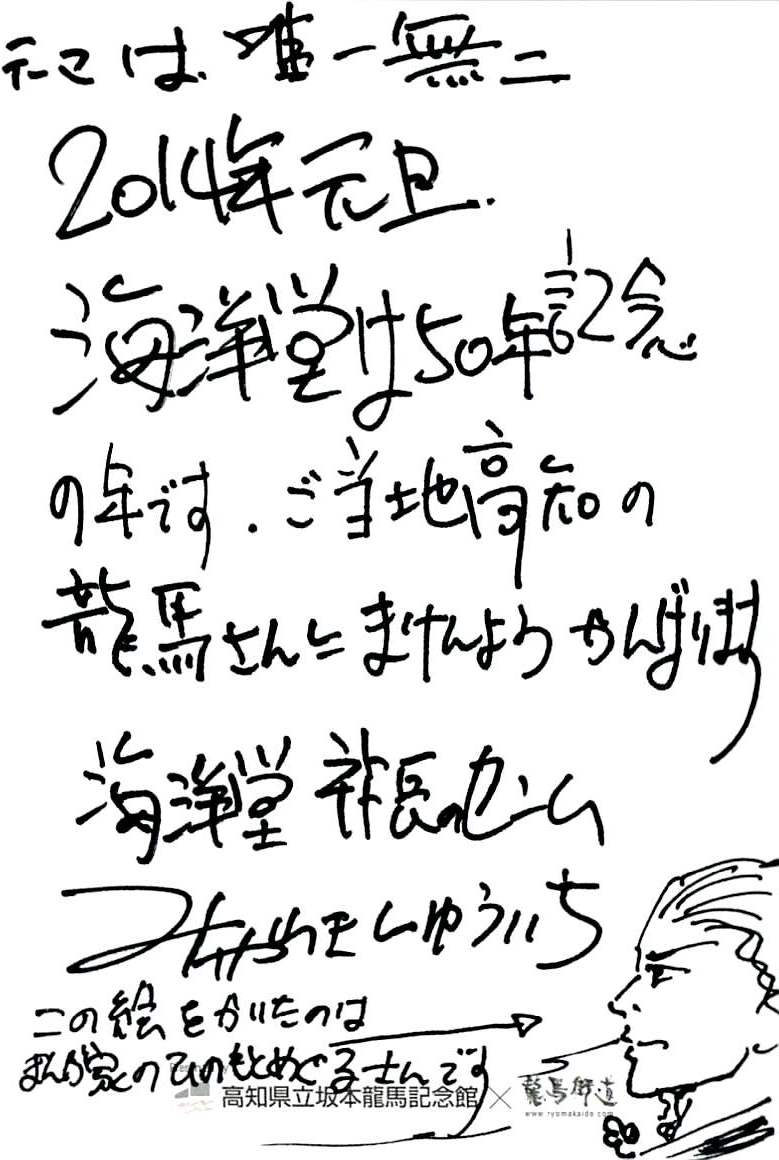 テーマは、唯一無二
2014年元旦.
海洋堂は50年記念
の年です.ご当地高知の
龍馬さんにまけんようがんばります
海洋堂 社長のセンム
みやわきしゅういち
この絵をかいたのは
まんが家のひのもとめぐるさんです
高知県立坂本龍馬記念館 × 龍馬街道
www.ryomakaido.com